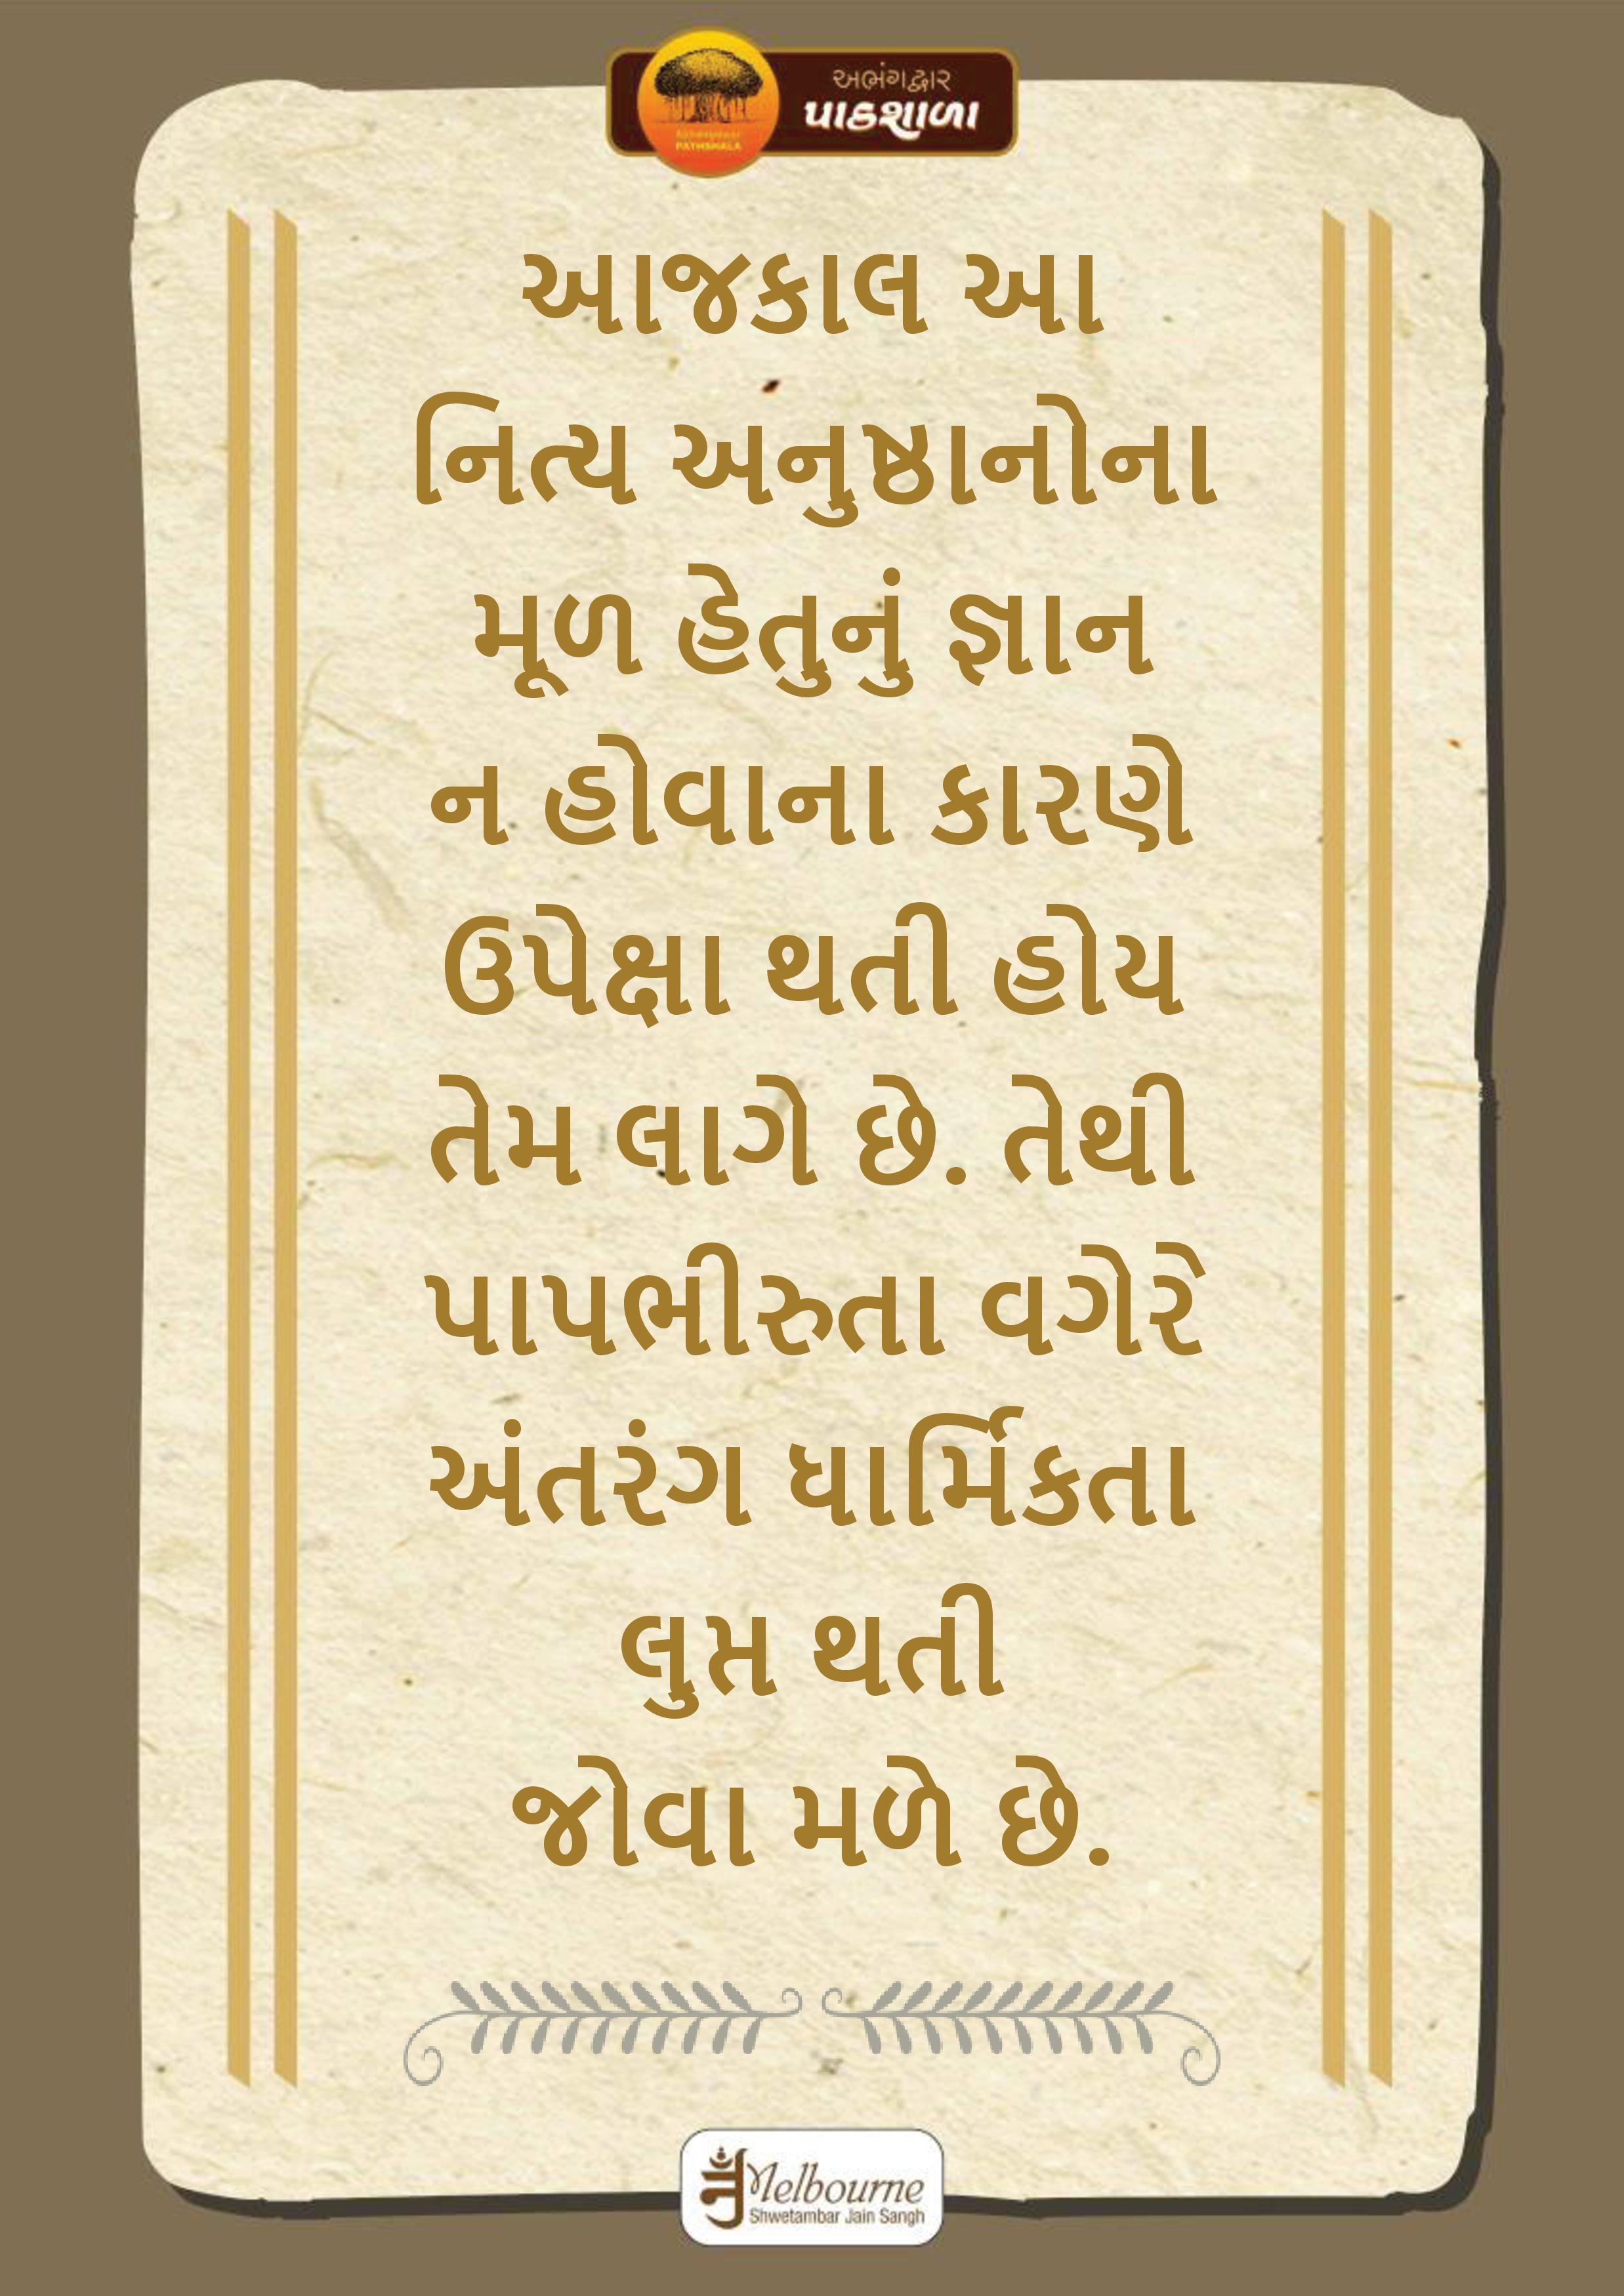 અભંગદ્વાર
પાઠશાળા
PATHSHALA
આજકાલ આ
નિત્ય અનુષ્ઠાનોના
મૂળ હેતુનું જ્ઞાન
ન હોવાના કારણે
ઉપેક્ષા થતી હોય
તેમ લાગે છે. તેથી
પાપભીરુતા વગેરે
અંતરંગ ધાર્મિકતા
લુપ્ત થતી
જોવા મળે છે.
Melbourne
Shwetambar Jain Sangh